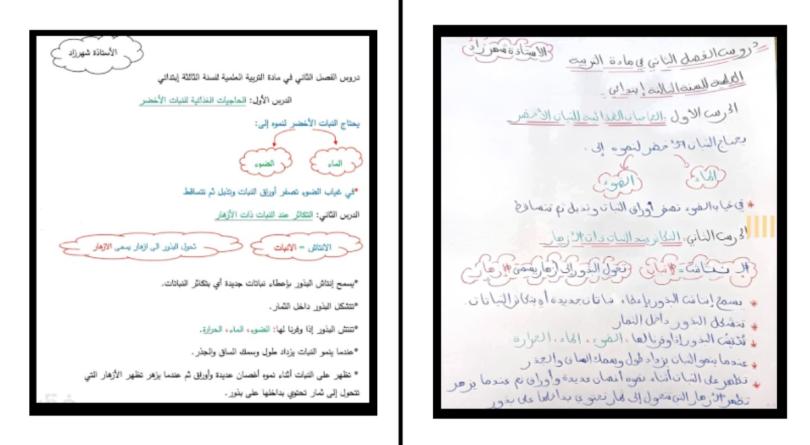 الأستاذة شهرزاد
دروس الفصل الثاني في مادة التربية العلمية لنسنة الثالثة إبتدائي
الدرس الأول: الحاجيات الغذائية لنبات الأخضر
يحتاج النبات الأخضر لنموه إلى:
الماء
الضوء
*في غياب الضوء تصفر أوراق النبات وتذبل ثم تتساقط
الدرس الثاني: التكاثر عند النبات ذات الأزهار
الانتاش = الانبات
تحول البذور الى ازهار يسمى الازهار
*يسمح إنتاش البذور بإعطاء نباتات جديدة أي بتكاثر النباتات.
*تتشكل البذور داخل الثمار.
*تنتش البذور إذا وفرنا لها: الضوء، الماء، الحرارة.
*عندما ينمو النبات يزداد طول وسمك الساق والجذر.
* تظهر على النبات أثناء نموه أغصان عديدة وأوراق ثم عندما يزهر تظهر الأزهار التي
تتحول إلى ثمار تحتوي بداخلها على بذور.
الأستاذة شهرزاد
دروس الفصل الثاني في مادة التربية
العلمية للسنة الثالثة إبتدائي
الدرس الأول: الحاجيات الغذائية للنبات الأخضر
يحتاج النبات الأخضر لنموه إلى:
الماء
الضوء
* في غياب الضوء تصفر أوراق النبات وتذبل ثم تتساقط
الدرس الثاني: التكاثر عند النبات ذات الأزهار
الإنتاش = الإنبات
تحول البذور إلى أزهار يسمى الإزهار
* يسمح إنتاش البذور بإعطاء نباتات جديدة أي بتكاثر النباتات.
* تتشكل البذور داخل الثمار
* تنتش البذور إذا وفرنا لها: الضوء، الماء، الحرارة
* عندما ينمو النبات يزداد طول وسمك الساق والجذر
* تظهر على النبات أثناء نموه أغصان عديدة وأوراق ثم عندما يزهر
تظهر الأزهار التي تتحول إلى ثمار تحتوي بداخلها على بذور